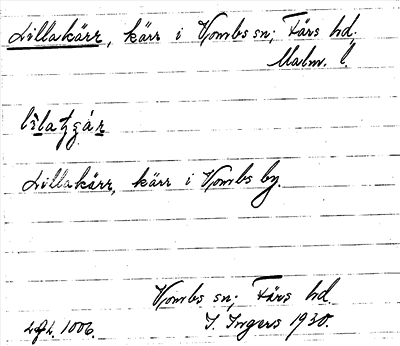 Lillakärr, kärr i Vombs sn; Färs hd.
Malm. l.
Lillakärr, kärr i Vombs by.
Vombs sn; Färs hd.
1006. I. Ingers 1930.